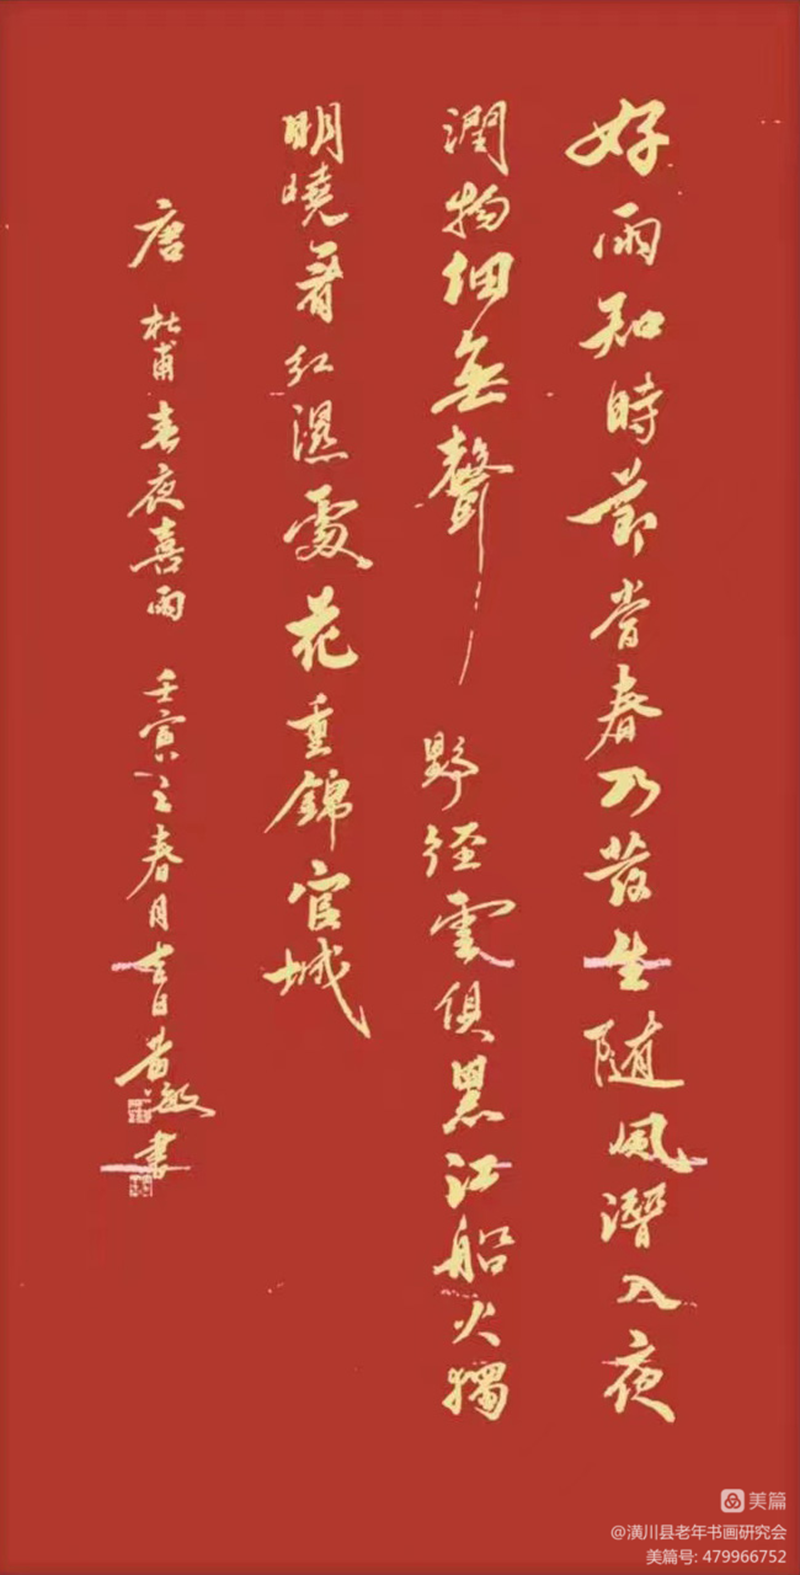 好雨知時節當春乃發生随風潛入夜
潤物細無聲 野徑雲俱黑江船火獨
明曉看紅濕處花重錦官城
唐 杜甫春夜喜雨 壬寅之春月吉日黄敏書
美篇
@潢川县老年书画研究会
美篇号: 479966752